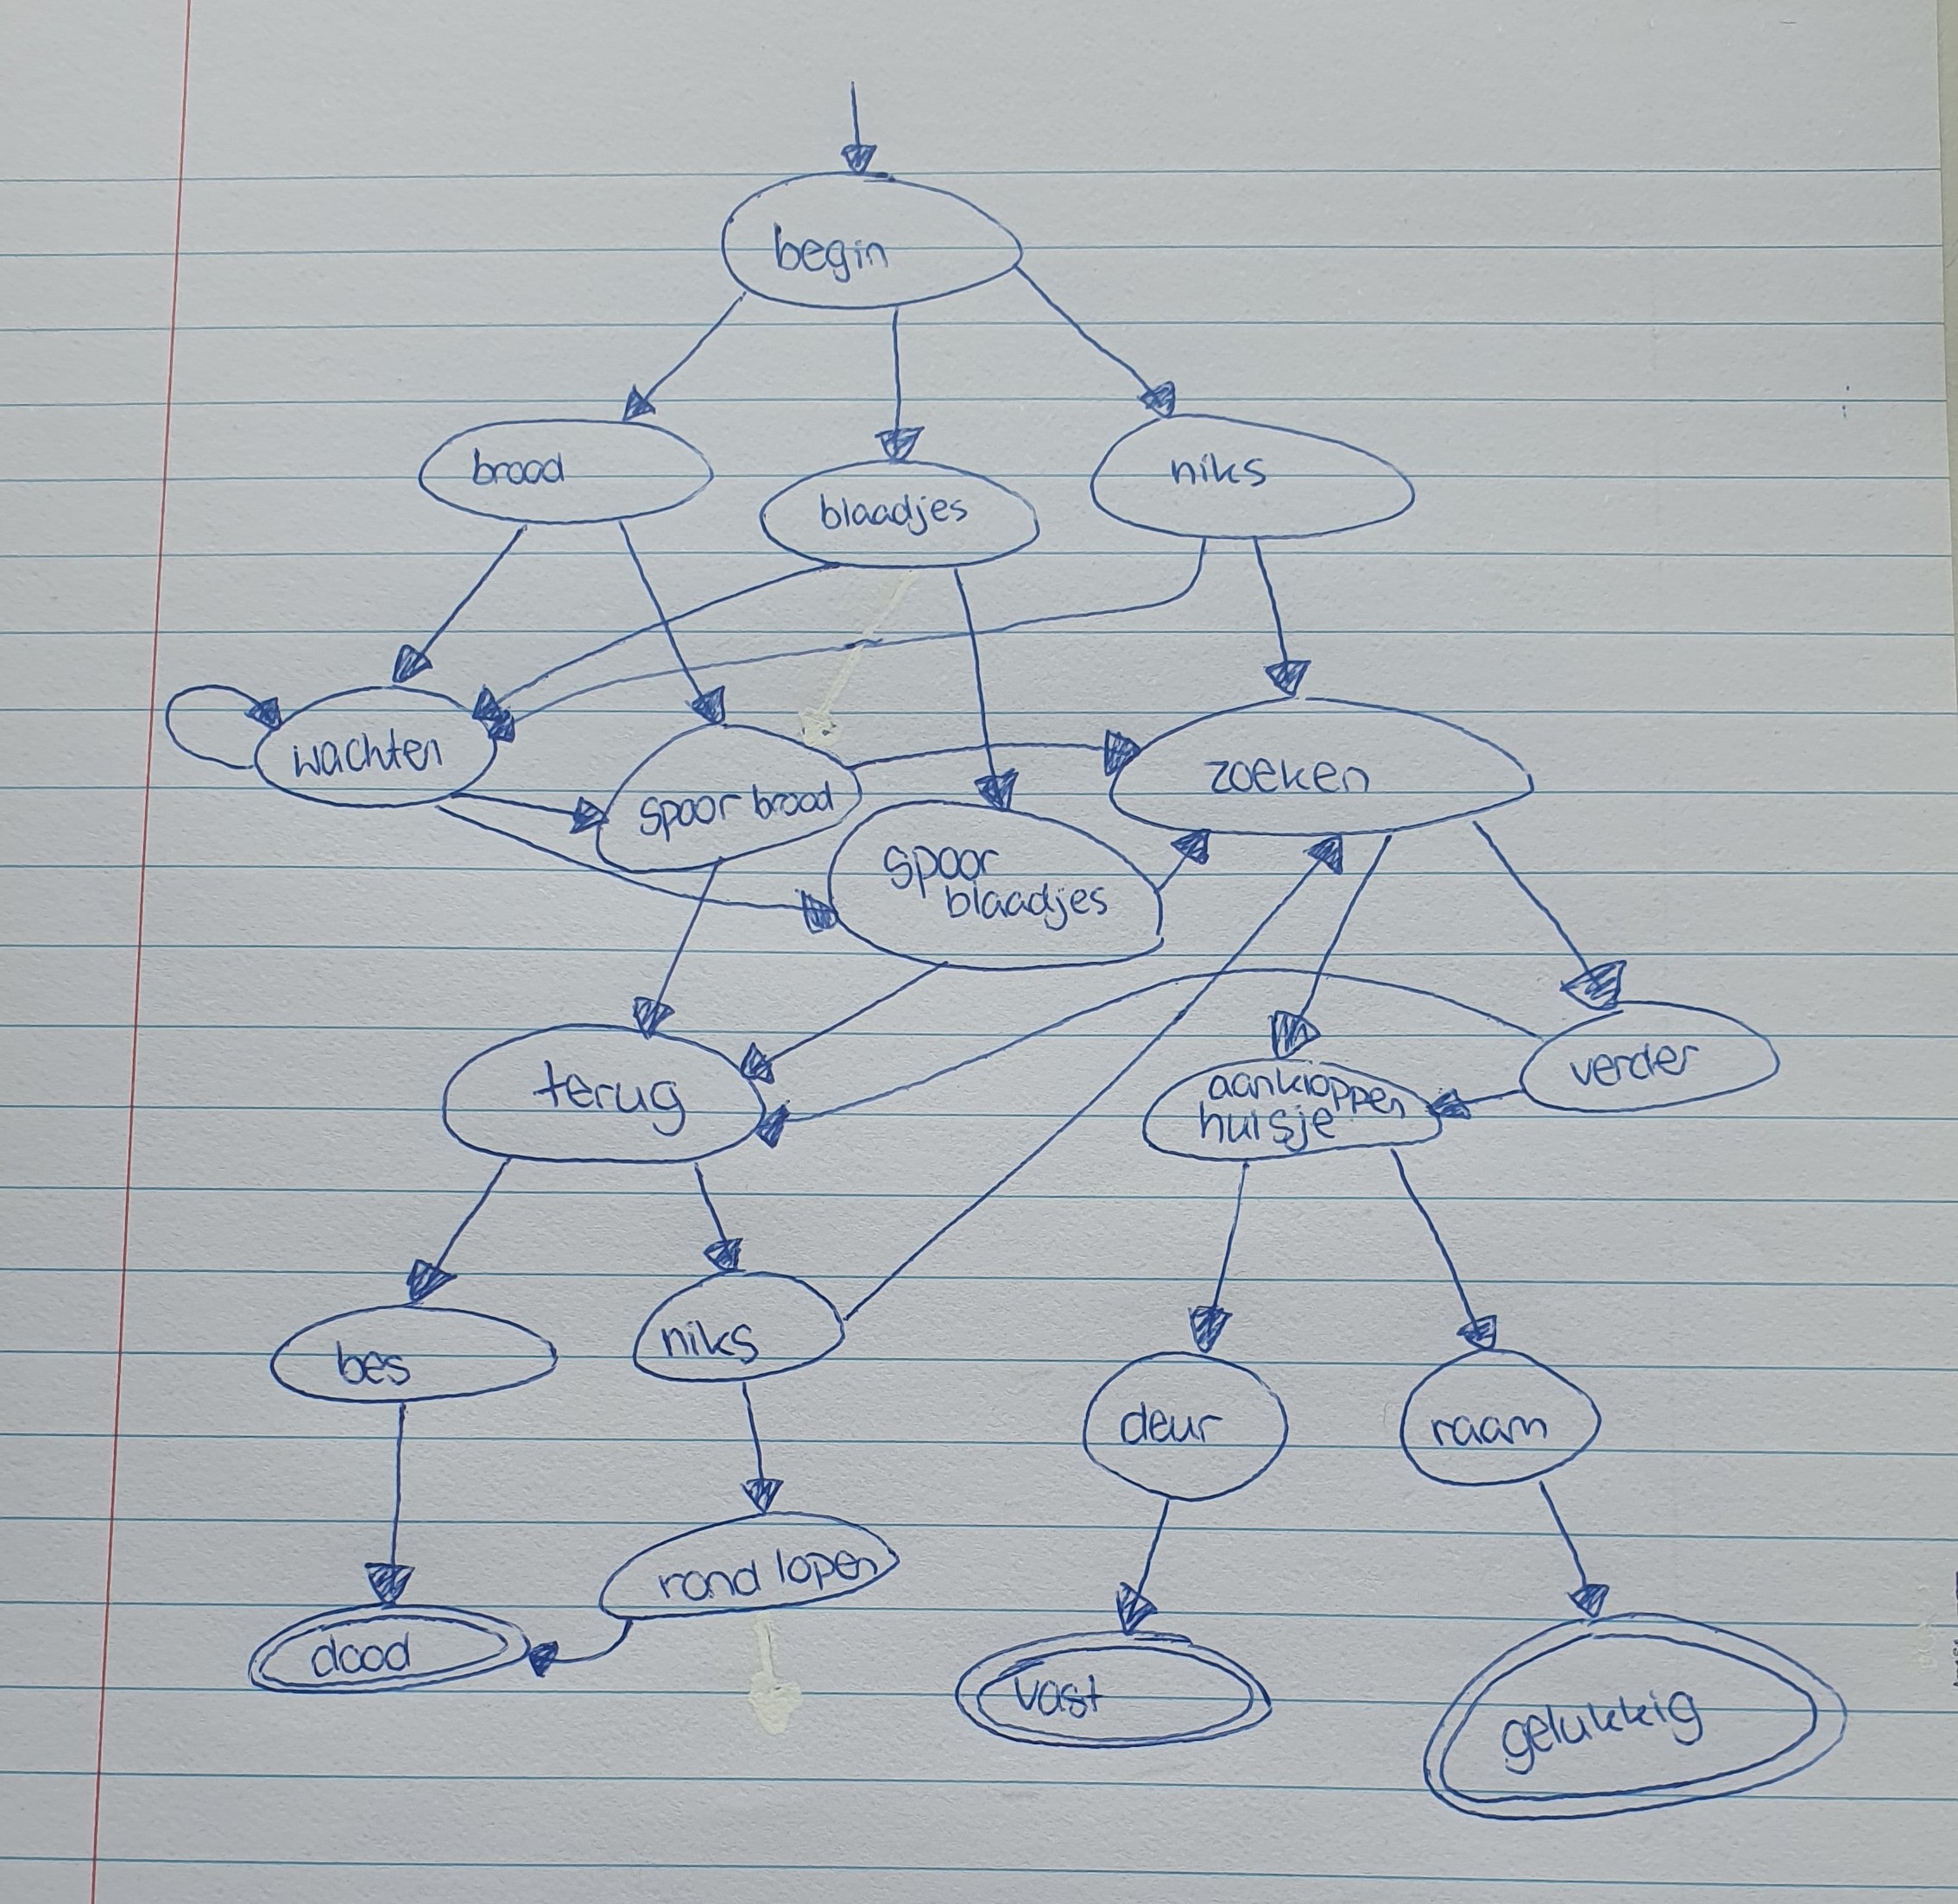 begin
brood
blaadjes
niks
wachten
spoor brood
zoeken
spoor
blaadjes
terug
aankloppen
huisje
verder
bes
niks
deur
raam
rond lopen
dood
vast
gelukkig